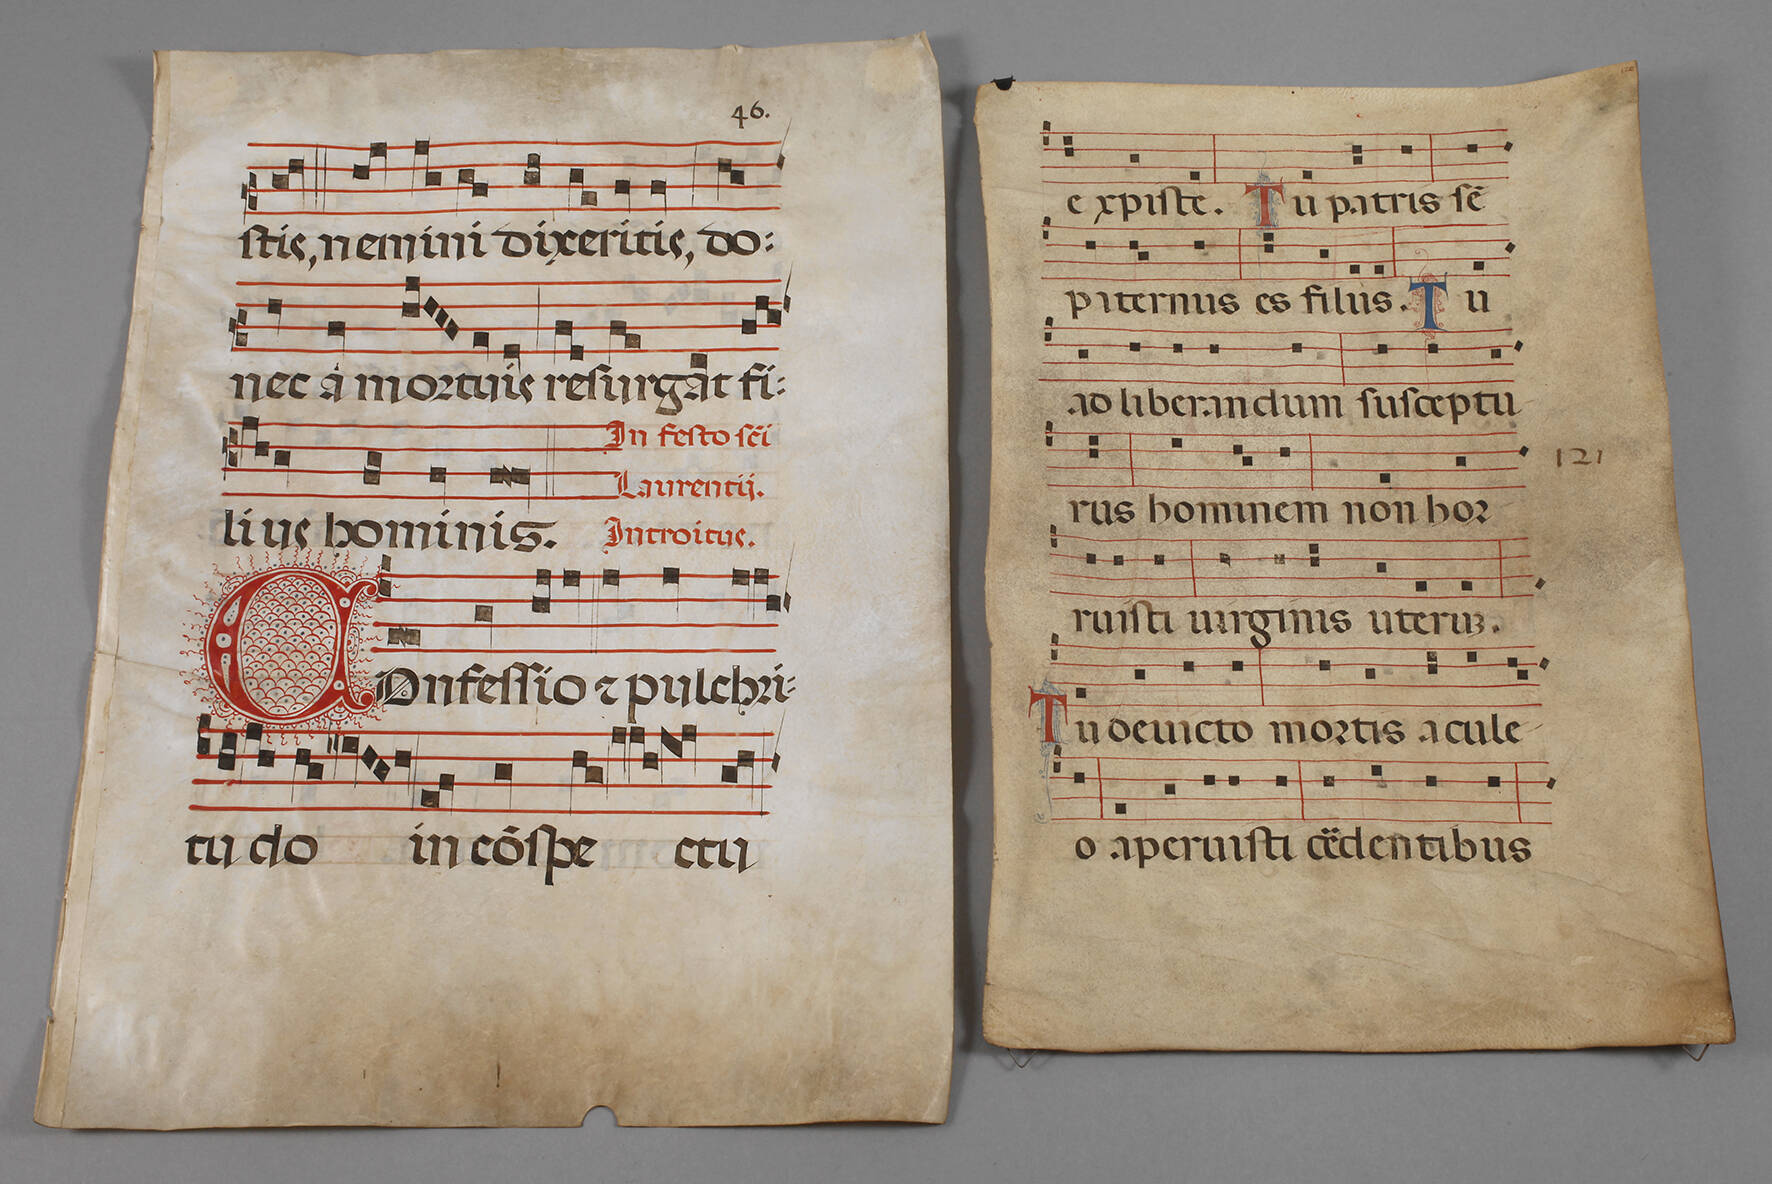 46.
stis, nemini dixeritis, do:
nec a mortuis resurgat fi:
In festo sc̄i
Laurentij.
lius hominis. Introitus.
COnfessio ⁊ pulchri:
tu do in cōspe ctu
e xpiste. Tu patris sē
piternus es filius. Tu
ad liberandum susceptu
121
rus hominem non hor
ruisti uirginis uterū.
Tu deuicto mortis acule
o aperuisti c̄dentibus